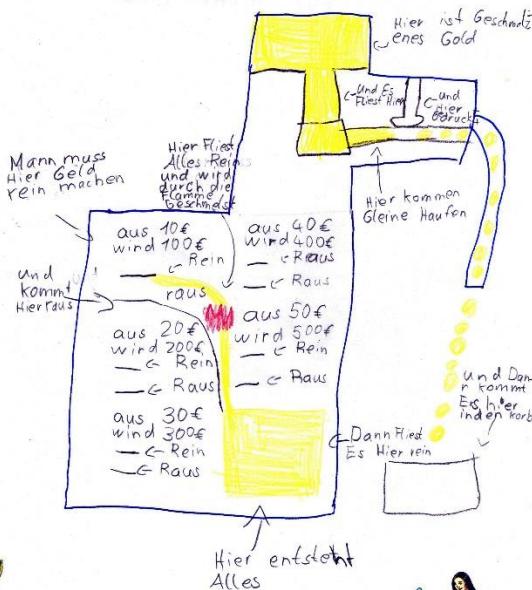 Hier ist Geschmelz
enes Gold
und Es
Fliest Hier
und
Hier
Gedruckt
Hier kommen
Gleine Haufen
Mann muss
Hier Geld
rein machen
Hier Fliest
Alles Rein
und wird
durch die
Flamme
Geschmelst
und
kommt
Hier raus
aus 10€
wird 100€
Rein
raus
aus 20€
wird 200€
Rein
Raus
aus 30€
wird 300€
Rein
Raus
aus 40€
wird 400€
Raus
Raus
aus 50€
wird 500€
Rein
Raus
Dann Fliest
Es Hier rein
und Dan
n kommt
Es hier
in den korb
Hier entsteht
Alles